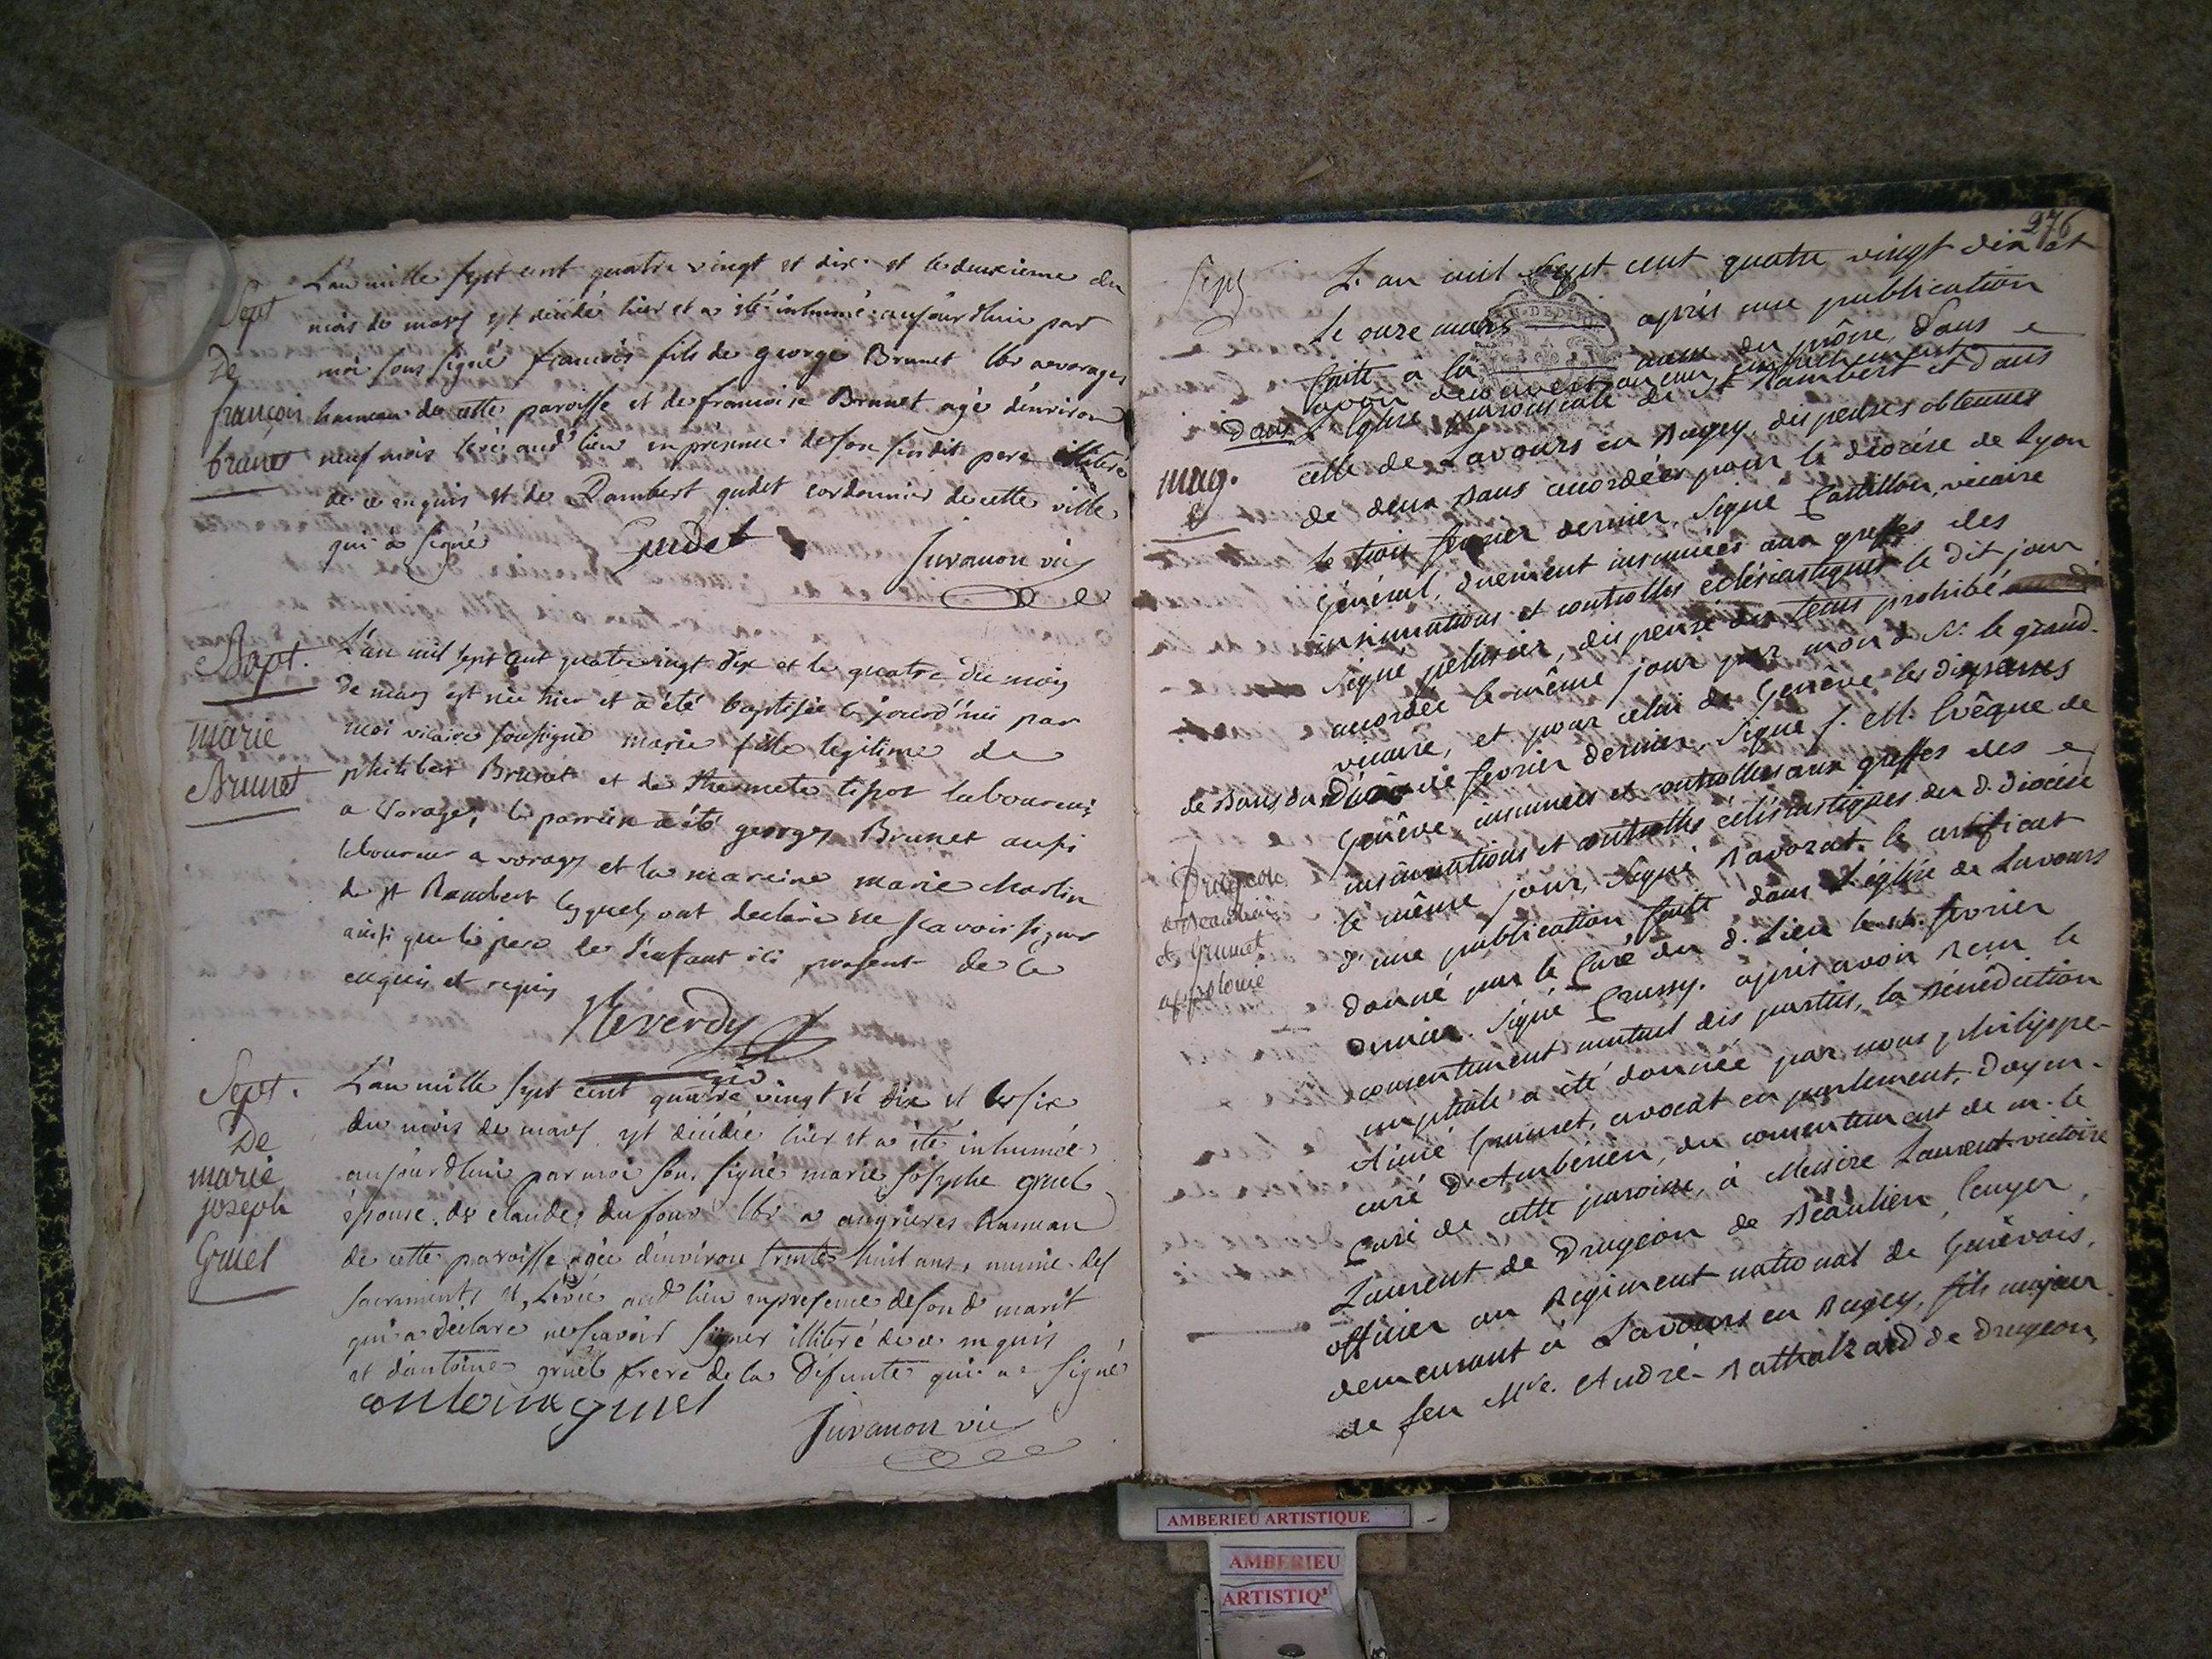 L'an mille sept cent quatre vingt et dix et le deuxieme du
mois de mars est décédé hier et a été inhumé aujourdhui par
moi sous signé françois fils de george Brunet lbr a vorages
hameau de cette paroisse et de francoise Brunet agé denviron
neuf mois levé aud lieu en présence de son susdit pere illiteré
de ce enquis et de Rambert gudet cordonnier de cette ville
qui a signé
Gudet
Juvanon vic
Sept
De
françois
brunet
Bapt.
marie
Brunet
L'an mil sept cent quatre vingt dix et le quatre du mois
de mars est née hier et a été baptisée ce jourd'hui par
moi vicaire soussigné marie fille legitime de
philibert Brunet et de thermete tipot laboureurs
a Vorages, le parrein a été georges Brunet aussi
laboureur a vorages et la mareine marie Martin
de st Rambert lesquels ont declaré ne scavoir signer
ainsi que le pere de l'enfant ici present de ce
enquis et requis
Reverdy
vic
Sept.
De
marie
joseph
Gruel
L'an mille sept cent quatre vingt et dix et le six
du mois de mars est décédée hier et a été inhumée
aujourdhui par moi sous signé marie josephe gruel
épouse de claude dufour lbr a angrieres hameau
de cette paroisse agée denviron trente huit ans, munie des
sacrements et levée aud lieu en presence de son d marit
qui a declaré ne scavoir signer illiteré de ce enquis
et dantoine gruel frere de la défunte qui a signé
antoine gruel
Juvanon vic
276
L'an mil sept cent quatre vingt dix et
le onze mars après une publication
faite a la du prône, dans
avoir decouvert aucun empêchement
dans L'Eglise paroissiale de St Rambert et dans
mag.
celle de Lavours en Bugey, dispenses obtenues
de deux bans accordées pour le diocèse de Lyon
le trois fevrier dernier, signé Castillon, vicaire
Général, duement insinuées aux greffes des
insinuations et controlles eclésiastiques le dit jour
signé pelissier, dispense du tems prohibé
accordée le même jour par mon d. Sr. le grand
vicaire, et pour celui de Genève les dispenses
de bans du fevrier dernier, signé J. M. Evêque de
Genêve insinuées et controllées aux greffes des
insinuations et controlles eclésiastiques du d. Diocèse
le même jour, signé Ravorat. le certificat
d'une publication faite dans l'église de Lavours
donné par le Curé du d. Lieu le fevrier
dernier. signé Crussy. après avoir reçu le
consentement mutuel des parties, la Bénédiction
nuptiale a été donnée par nous philippe
Aimé Grumet, avocat en parlement, doyen
curé d'Ambérieu, du consentement de m. le
Curé de cette paroisse, à Messire Laurent-victoire
Laurent de Drujeon de Beaulieu, Ecuyer,
officier au Regiment national de Genevois,
demeurant à Lavours en Bugey, fils majeur
de feu Mre. André-Bathalzard de Drujeon,
Drujeon
de Beaulieu
et Grumet
appolonie
AMBERIEU ARTISTIQUE
AMBERIEU
ARTISTIQ'